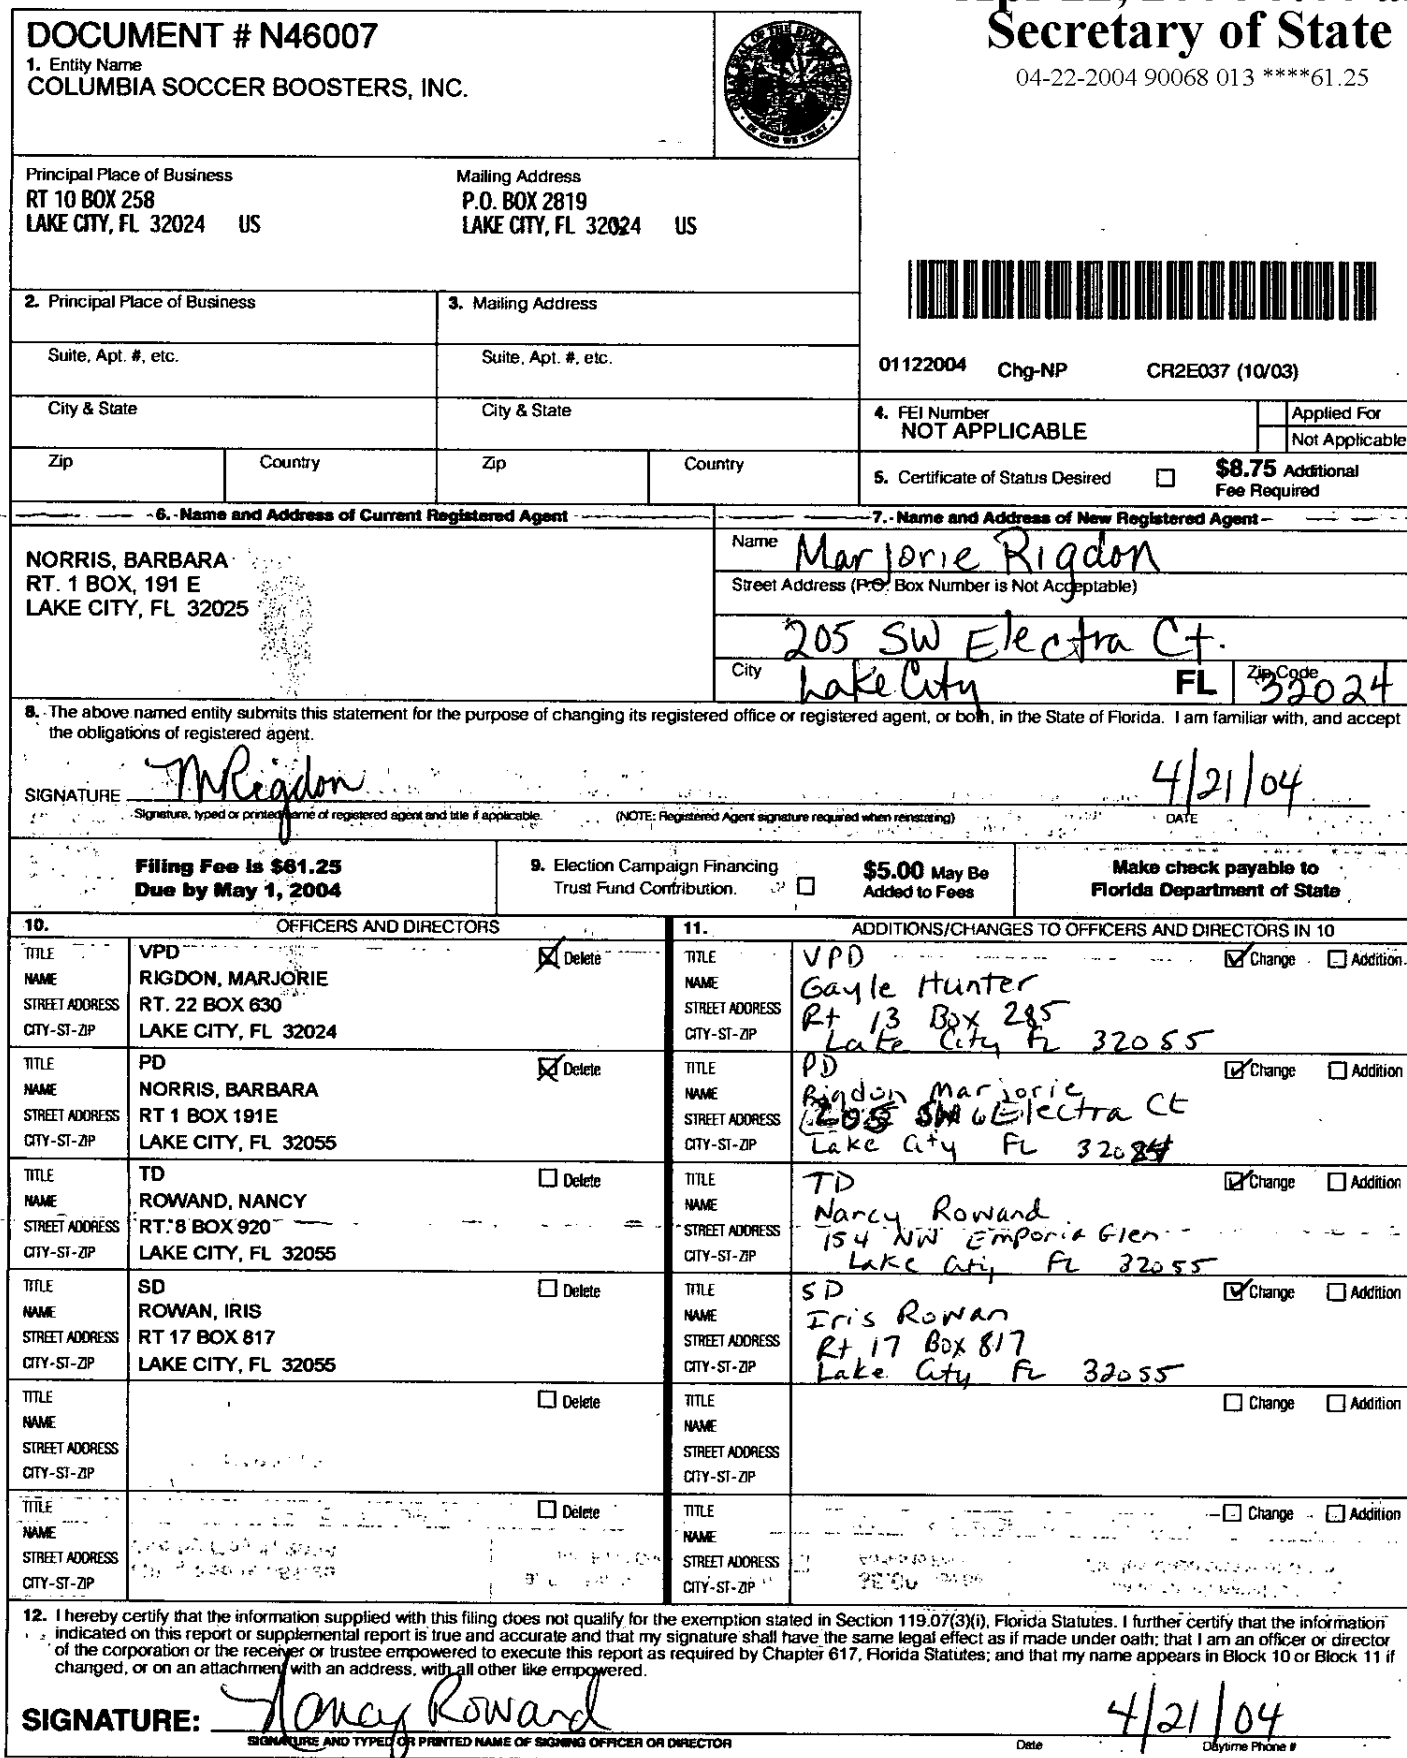 Secretary of State
04-22-2004 90068 013 ****61.25
DOCUMENT # N46007
1. Entity Name
COLUMBIA SOCCER BOOSTERS, INC.
Principal Place of Business
RT 10 BOX 258
LAKE CITY, FL 32024 US
Mailing Address
P.O. BOX 2819
LAKE CITY, FL 32024 US
2. Principal Place of Business
3. Mailing Address
Suite, Apt. #, etc.
Suite, Apt. #, etc.
City & State
City & State
Zip Country Zip Country
01122004 Chg-NP CR2E037 (10/03)
4. FEI Number
NOT APPLICABLE
Applied For
Not Applicable
5. Certificate of Status Desired
$8.75 Additional
Fee Required
6. Name and Address of Current Registered Agent
NORRIS, BARBARA
RT. 1 BOX, 191 E
LAKE CITY, FL 32025
7. Name and Address of New Registered Agent
Name Marjorie Rigdon
Street Address (P.O. Box Number is Not Acceptable)
205 SW Electra Ct.
City Lake City FL Zip Code 32024
8. The above named entity submits this statement for the purpose of changing its registered office or registered agent, or both, in the State of Florida. I am familiar with, and accept
the obligations of registered agent.
SIGNATURE MRigdon 4/21/04
Signature, typed or printed name of registered agent and title if applicable. (NOTE: Registered Agent signature required when reinstating) DATE
Filing Fee is $61.25
Due by May 1, 2004
9. Election Campaign Financing
Trust Fund Contribution.
$5.00 May Be
Added to Fees
Make check payable to
Florida Department of State
10. OFFICERS AND DIRECTORS
TITLE VPD Delete
NAME RIGDON, MARJORIE
STREET ADDRESS RT. 22 BOX 630
CITY-ST-ZIP LAKE CITY, FL 32024
TITLE PD Delete
NAME NORRIS, BARBARA
STREET ADDRESS RT 1 BOX 191E
CITY-ST-ZIP LAKE CITY, FL 32055
TITLE TD Delete
NAME ROWAND, NANCY
STREET ADDRESS RT. 8 BOX 920
CITY-ST-ZIP LAKE CITY, FL 32055
TITLE SD Delete
NAME ROWAN, IRIS
STREET ADDRESS RT 17 BOX 817
CITY-ST-ZIP LAKE CITY, FL 32055
TITLE Delete
NAME
STREET ADDRESS
CITY-ST-ZIP
TITLE Delete
NAME
STREET ADDRESS
CITY-ST-ZIP
11. ADDITIONS/CHANGES TO OFFICERS AND DIRECTORS IN 10
TITLE VPD Change Addition
NAME Gayle Hunter
STREET ADDRESS Rt 13 Box 285
CITY-ST-ZIP Lake City FL 32055
TITLE PD Change Addition
NAME Rigdon Marjorie
STREET ADDRESS 205 SW Electra Ct
CITY-ST-ZIP Lake City FL
TITLE TD Change Addition
NAME Nancy Rowand
STREET ADDRESS 154 NW Emporia Glen
CITY-ST-ZIP Lake City FL 32055
TITLE SD Change Addition
NAME Iris Rowan
STREET ADDRESS Rt 17 Box 817
CITY-ST-ZIP Lake City FL 32055
TITLE Change Addition
NAME
STREET ADDRESS
CITY-ST-ZIP
TITLE Change Addition
NAME
STREET ADDRESS
CITY-ST-ZIP
12. I hereby certify that the information supplied with this filing does not qualify for the exemption stated in Section 119.07(3)(i), Florida Statutes. I further certify that the information
indicated on this report or supplemental report is true and accurate and that my signature shall have the same legal effect as if made under oath; that I am an officer or director
of the corporation or the receiver or trustee empowered to execute this report as required by Chapter 617, Florida Statutes; and that my name appears in Block 10 or Block 11 if
changed, or on an attachment with an address, with all other like empowered.
SIGNATURE: Nancy Rowand 4/21/04
SIGNATURE AND TYPED OR PRINTED NAME OF SIGNING OFFICER OR DIRECTOR Date Daytime Phone #